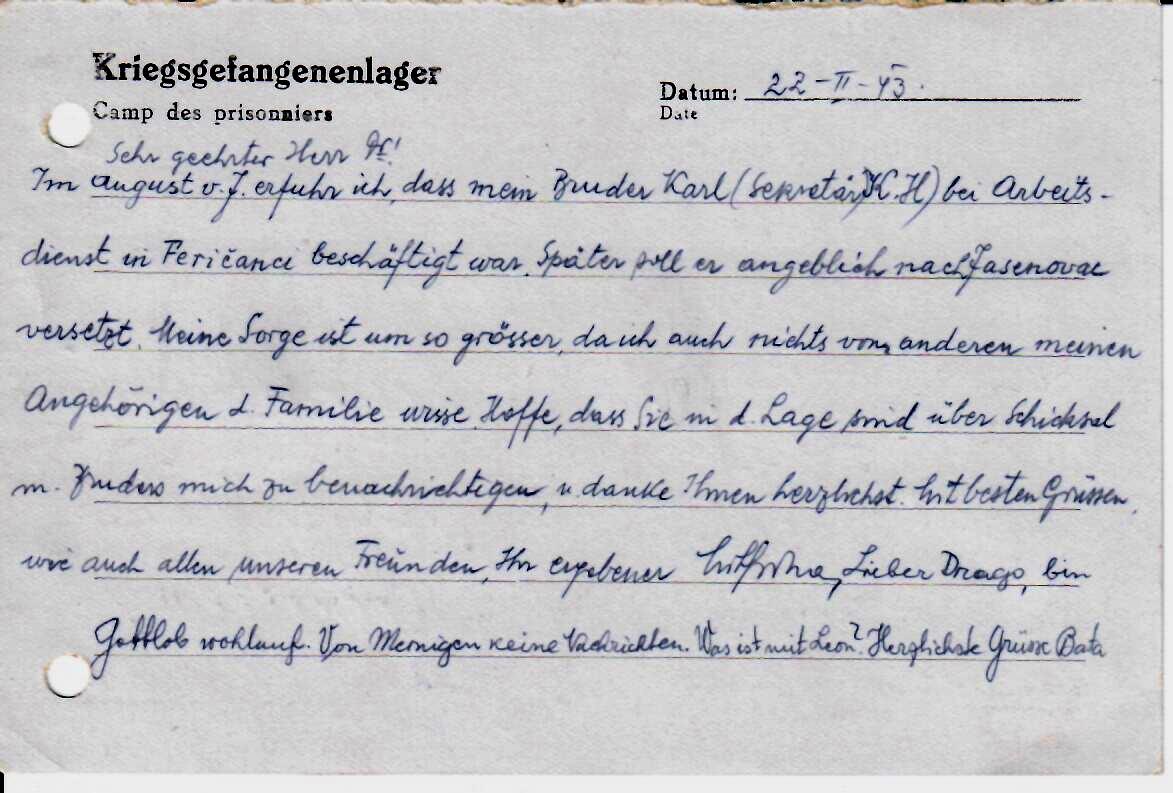 Kriegsgefangenenlager
Camp des prisonniers
Datum: 22-II-43.
Date
Sehr geehrter Herr
Im August v. J. erfuhr ich, dass mein Bruder Karl (Sekretär K.H) bei Arbeits-
dienst in Feričanci beschäftigt war. Später soll er angeblich nach Jasenovac
versetzt. Meine Sorge ist um so grösser, da ich auch nichts von anderen meinen
Angehörigen d. Familie wisse. Hoffe, dass Sie in d. Lage sind über Schicksal
m. Bruders mich zu benachrichtigen, u. danke Ihnen herzlichst. Mit besten Grüssen,
wie auch allen unseren Freunden, Ihr ergebener Lieber Drago, bin
Gottlob wohlauf. Von Meinigen keine Nachrichten. Was ist mit Leon? Herzlichste Grüsse Bata